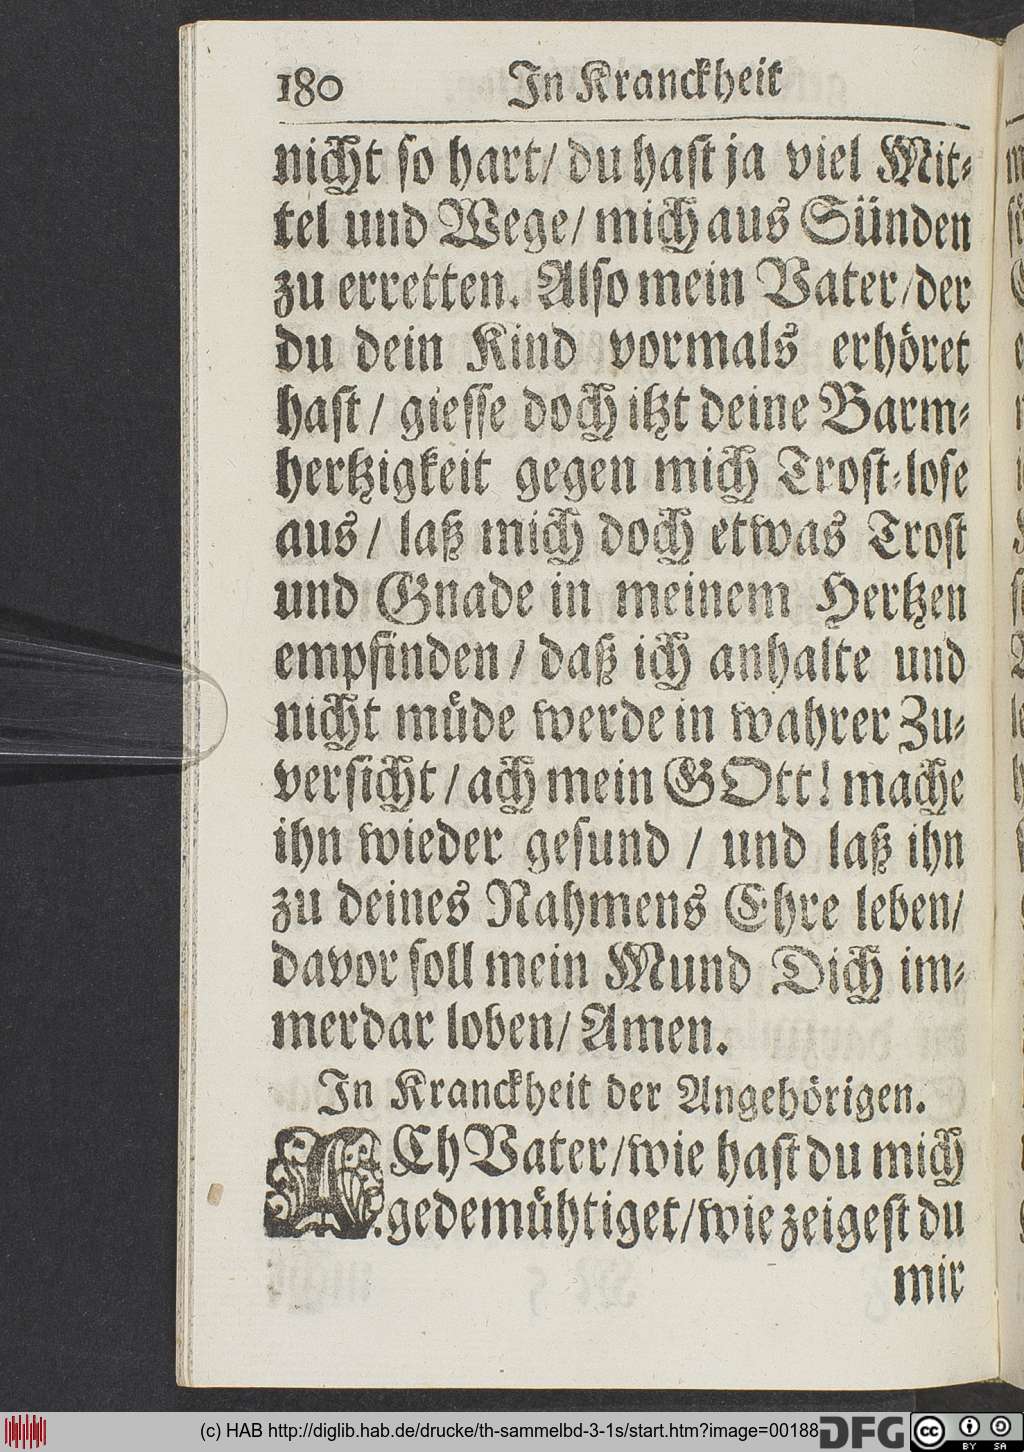 180 In Kranckheit
nicht so hart/ du hast ja viel Mit-
tel und Wege/ mich aus Sünden
zu erretten. Also mein Vater/ der
du dein Kind vormals erhöret
hast/ giesse doch itzt deine Barm-
hertzigkeit gegen mich Trost-lose
aus/ laß mich doch etwas Trost
und Gnade in meinem Hertzen
empfinden/ daß ich anhalte und
nicht müde werde in wahrer Zu-
versicht/ ach mein GOtt! mache
ihn wieder gesund / und laß ihn
zu deines Nahmens Ehre leben/
davor soll mein Mund Dich im-
merdar loben/ Amen.
In Kranckheit der Angehörigen.
ACh Vater/ wie hast du mich
gedemühtiget/ wie zeigest du
mir
(c) HAB http://diglib.hab.de/drucke/th-sammelbd-3-1s/start.htm?image=00188 DFG cc BY SA